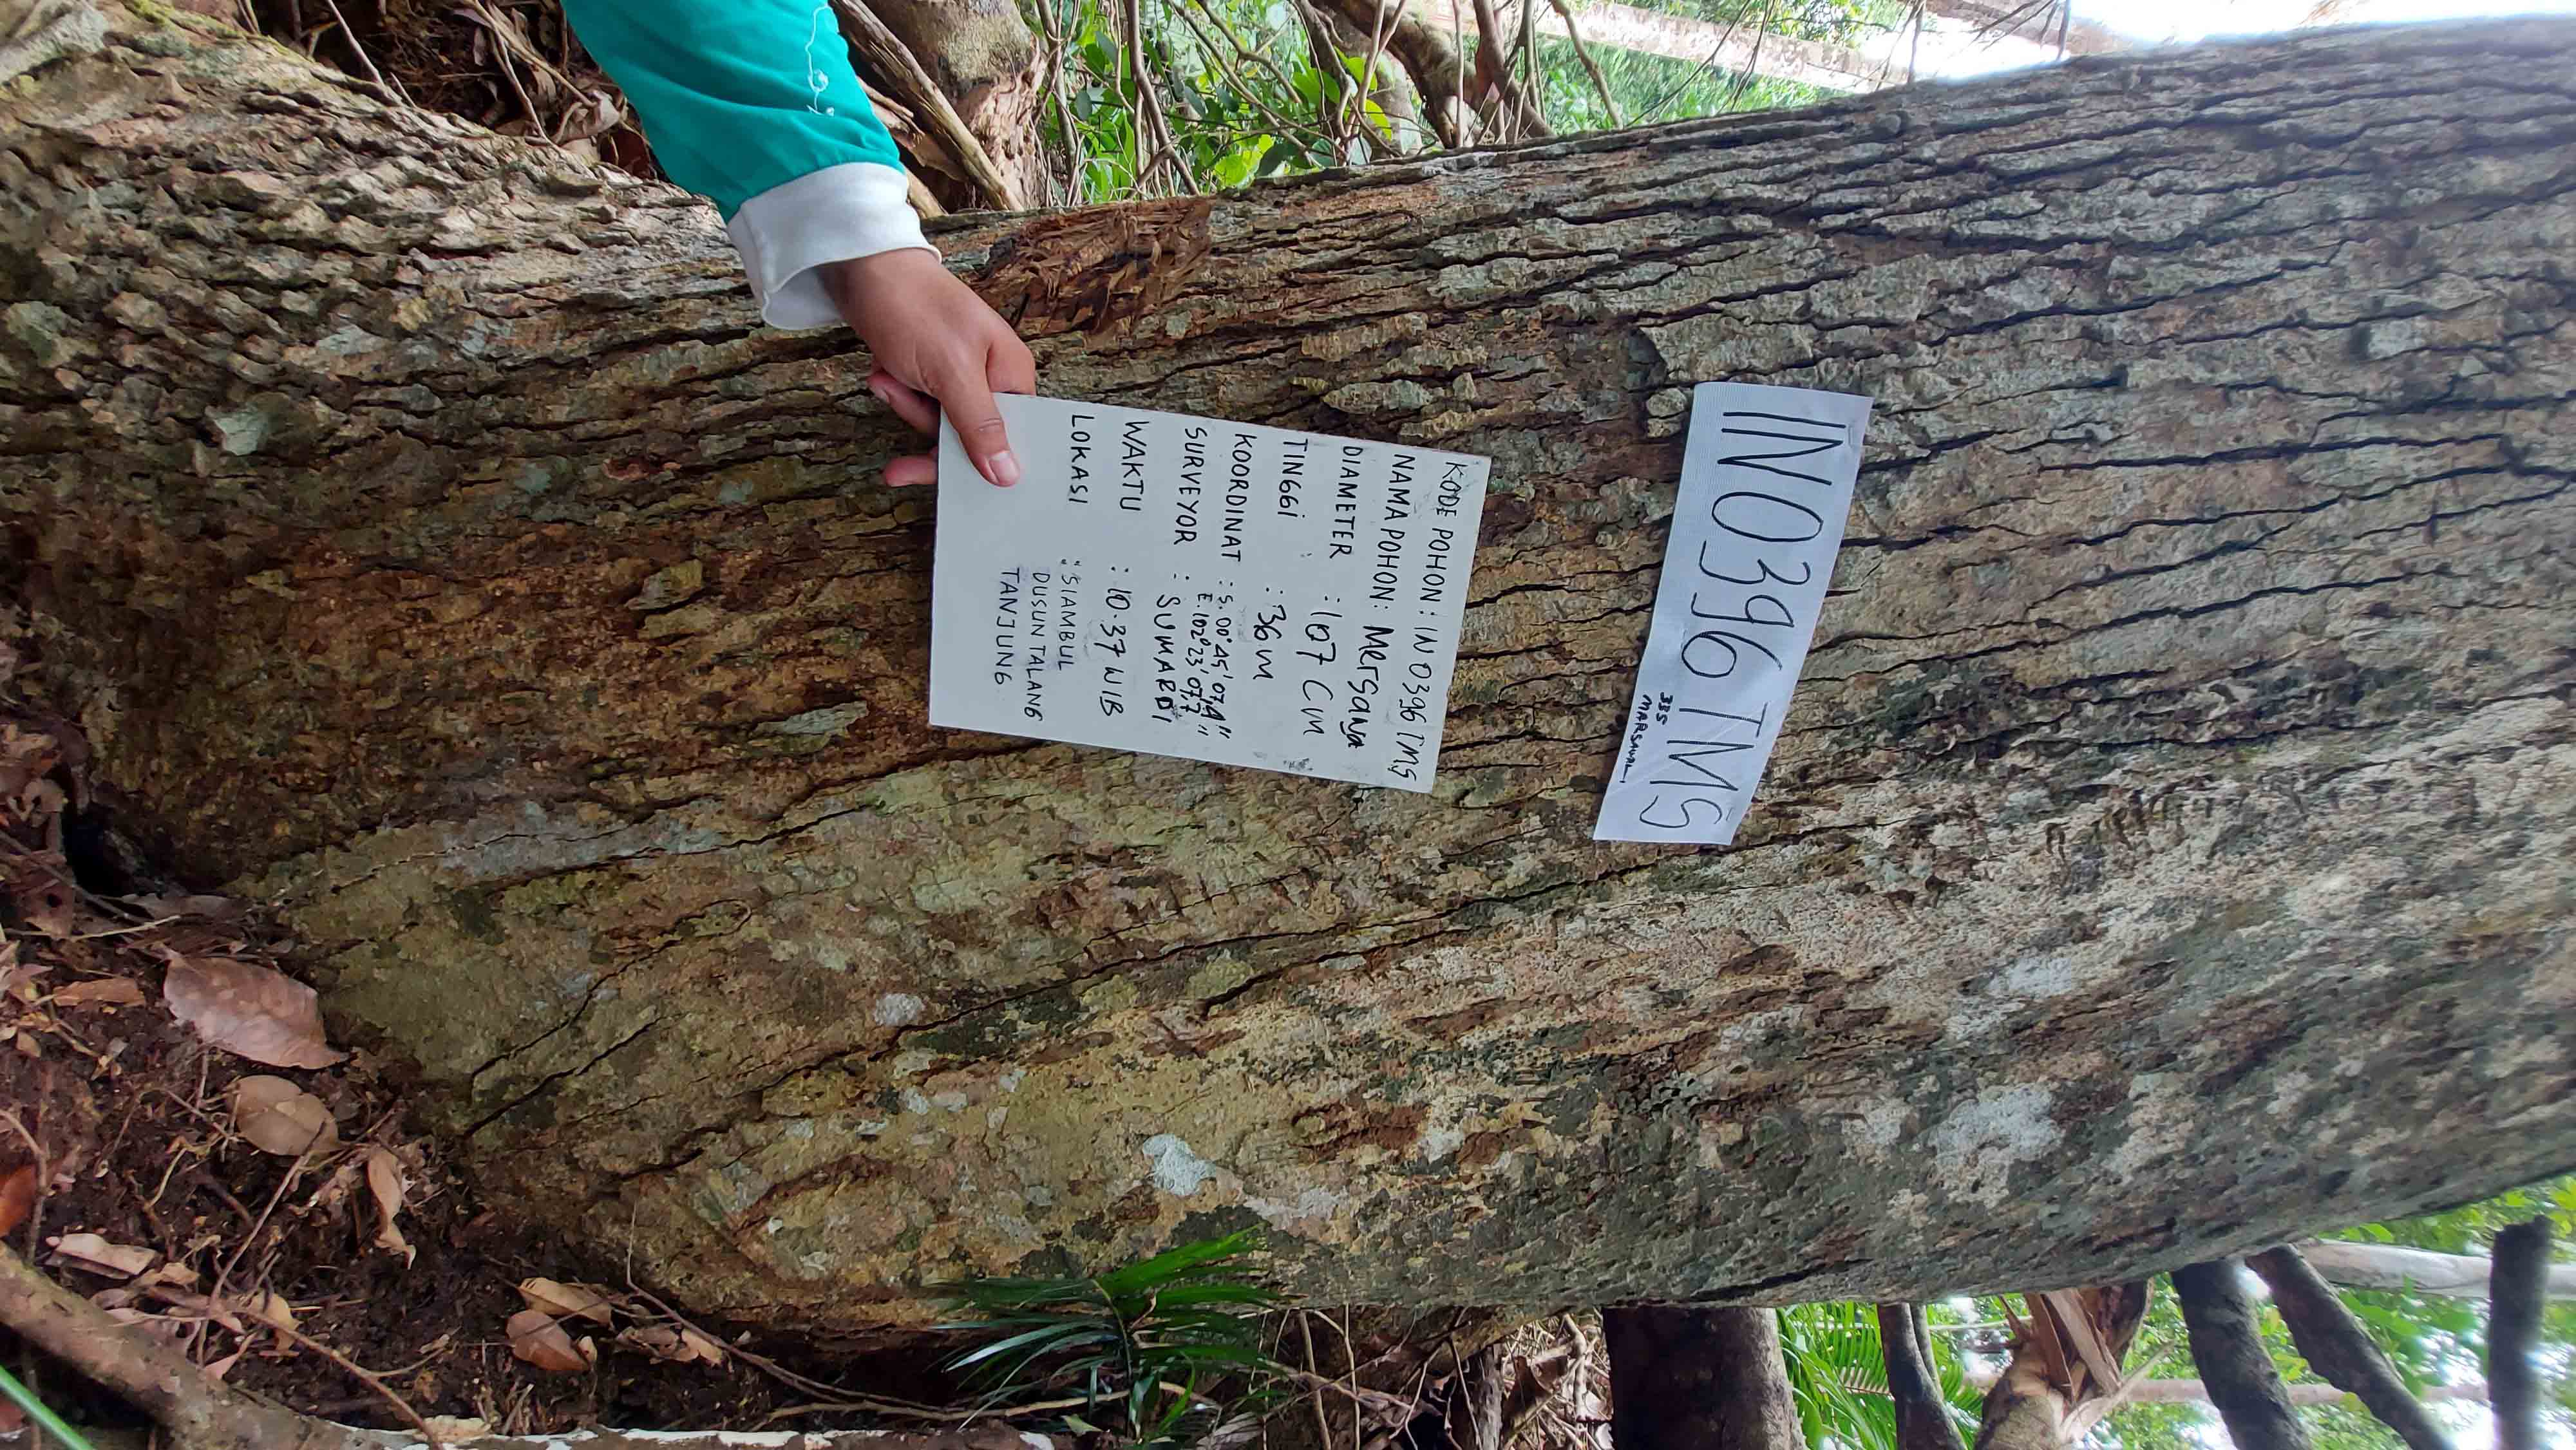 IN0396 TMS
335
MARSAWAL
KODE POHON : IN 0396 TMS
NAMA POHON: Mersawa
DIAMETER : 107 Cm
TINGGi : 36 m
KOORDINAT : S. 00° 45' 07,4"
E. 102° 23' 07,7"
SURVEYOR : SUMARDI
WAKTU : 10.37 WIB
LOKASI : SIAMBUL
DUSUN TALANG
TANJUNG